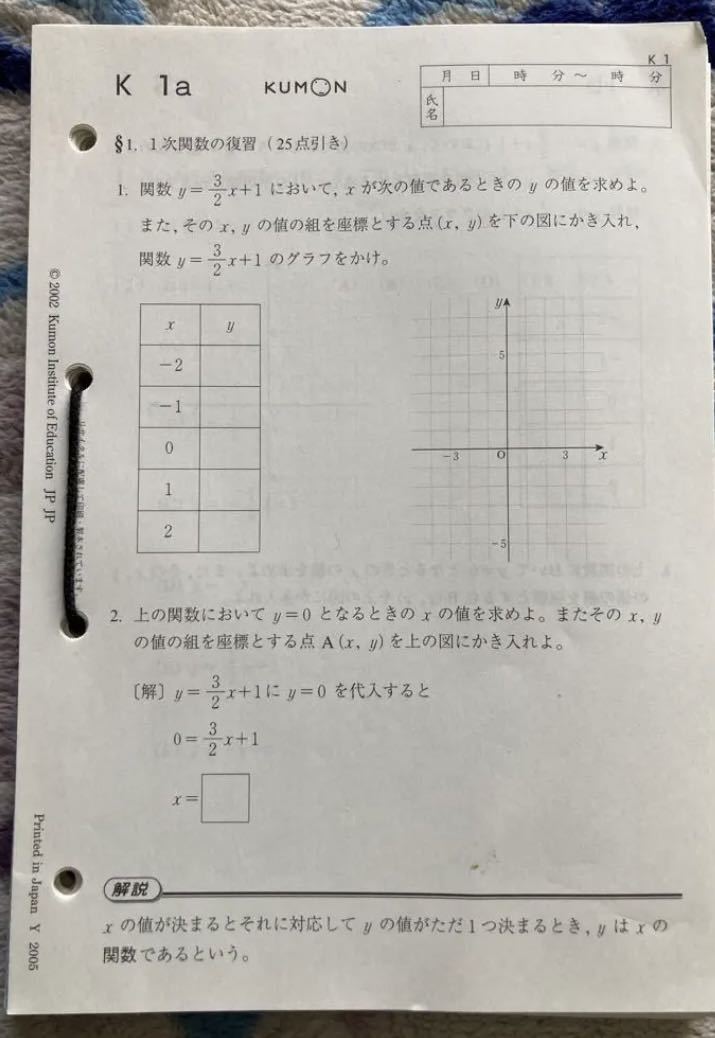 K 1
K 1a
KUMON
月 日 時 分～ 時 分
氏名
§1. 1次関数の復習（25点引き）
1. 関数 y=3/2x+1 において, x が次の値であるときの y の値を求めよ。
また, その x, y の値の組を座標とする点(x, y) を下の図にかき入れ,
関数 y=3/2x+1 のグラフをかけ。
x y
−2
−1
0
1
2
y
5
−3 O 3 x
−5
2. 上の関数において y=0 となるときの x の値を求めよ。またその x, y
の値の組を座標とする点 A(x, y) を上の図にかき入れよ。
〔解〕y=3/2x+1に y=0 を代入すると
0=3/2x+1
x=
解説
x の値が決まるとそれに対応して y の値がただ1つ決まるとき, y は x の
関数であるという。
© 2002 Kumon Institute of Education JP JP
Printed in Japan Y 2005